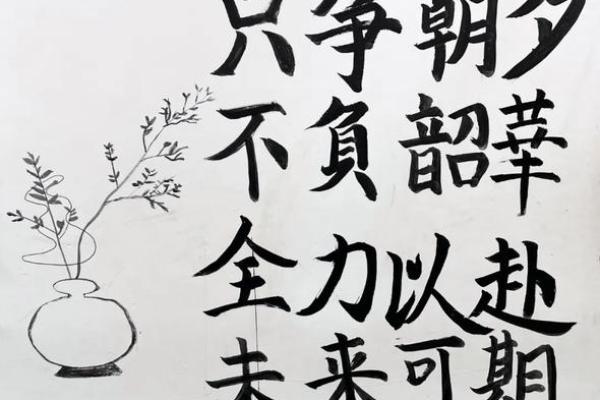 只争朝夕
不負韶華
全力以赴
未来可期